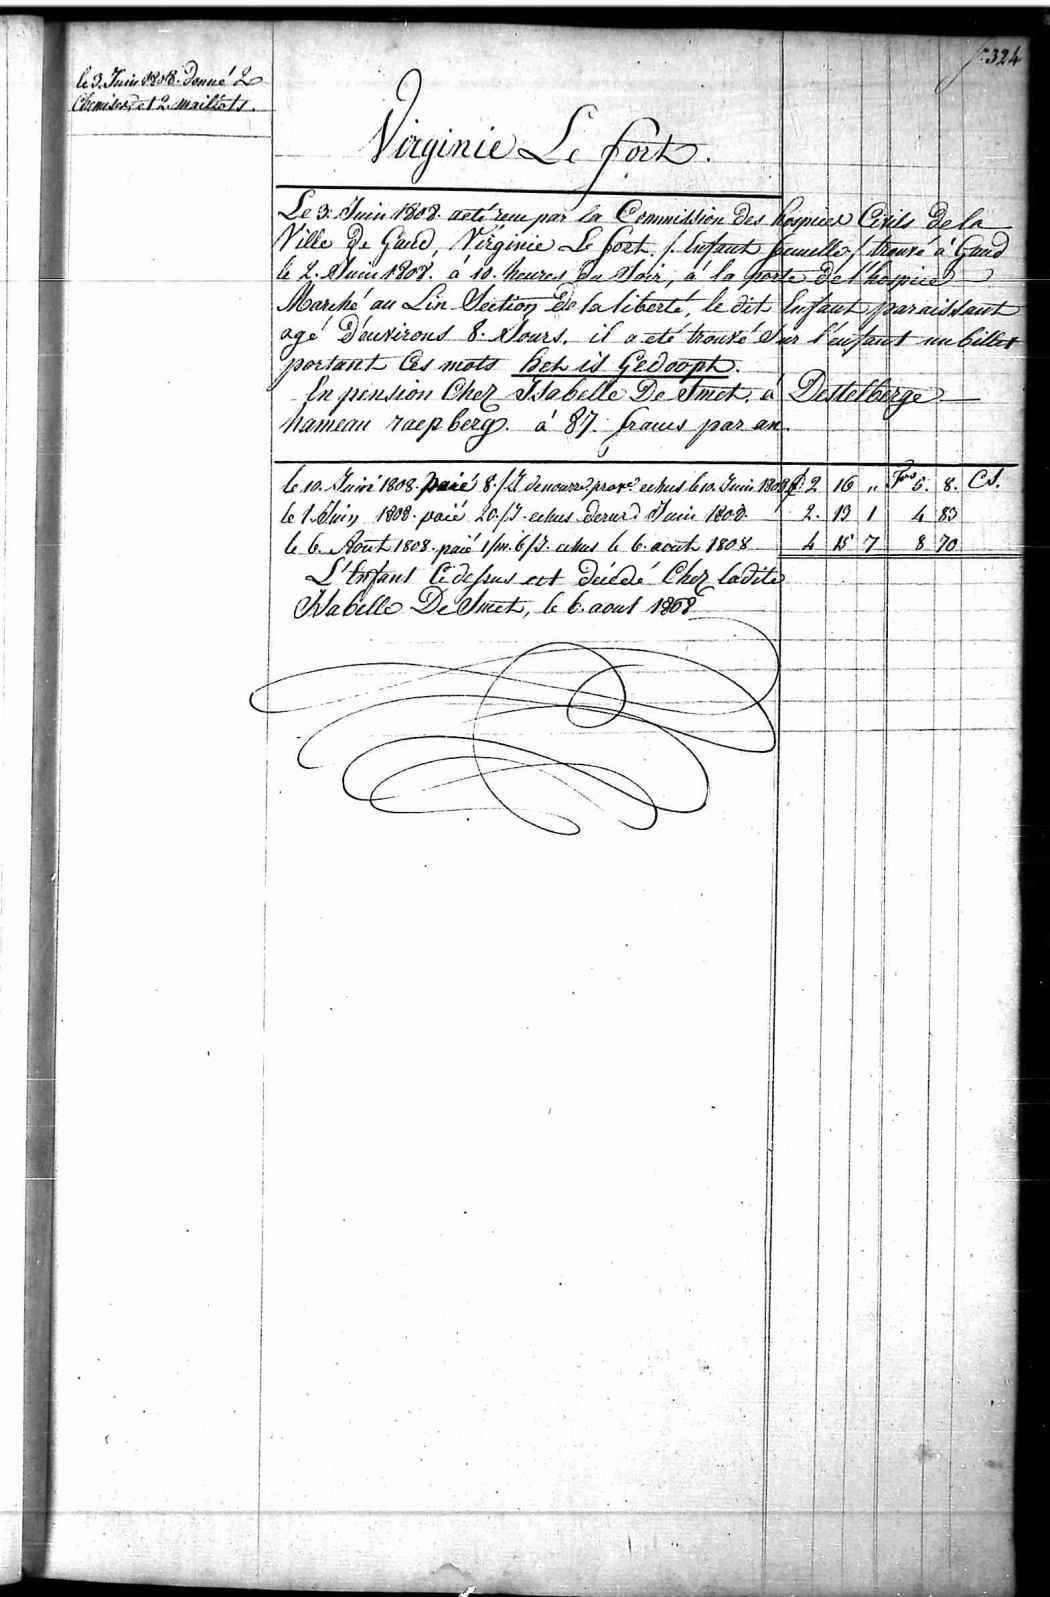 f° 324
le 3. Juin 1808. donné 2
Chemises et 2. maillots.
Virginie Le fort.
Le 3. Juin 1808. a eté recu par la Commission des hospices Civils de la
Ville de Gand, Virginie Le fort. /: Enfant femelle :/ trouvé à Gand
le 2. Juin 1808. à 10. heures du Soir, à la porte de l'hospice
Marché au Lin Section de la liberté, le dit Enfant paraissant
agé d'environs 8. Jours. il a eté trouvé Sur l'enfant un billet
portant Ces mots het is Gedoopt.
En pension Chez Isabelle De Smet. à Destelberge
hameau raepberg. à 87. francs par an.
le 10. Juin 1808. paié 8./J. echus le 10. Juin 1808 2 16 „ 5. 8. Cs.
le 1. 1808. paié 20./J. echus Juin 1808. 2. 13 1 4 83
le 6. Août 1808. paié 1/m. 6/J. echus le 6. août 1808 4 15 7 8 70
L'Enfant Cidessus est décedé Chez ladite
Isabelle De Smet, le 6. aout 1808